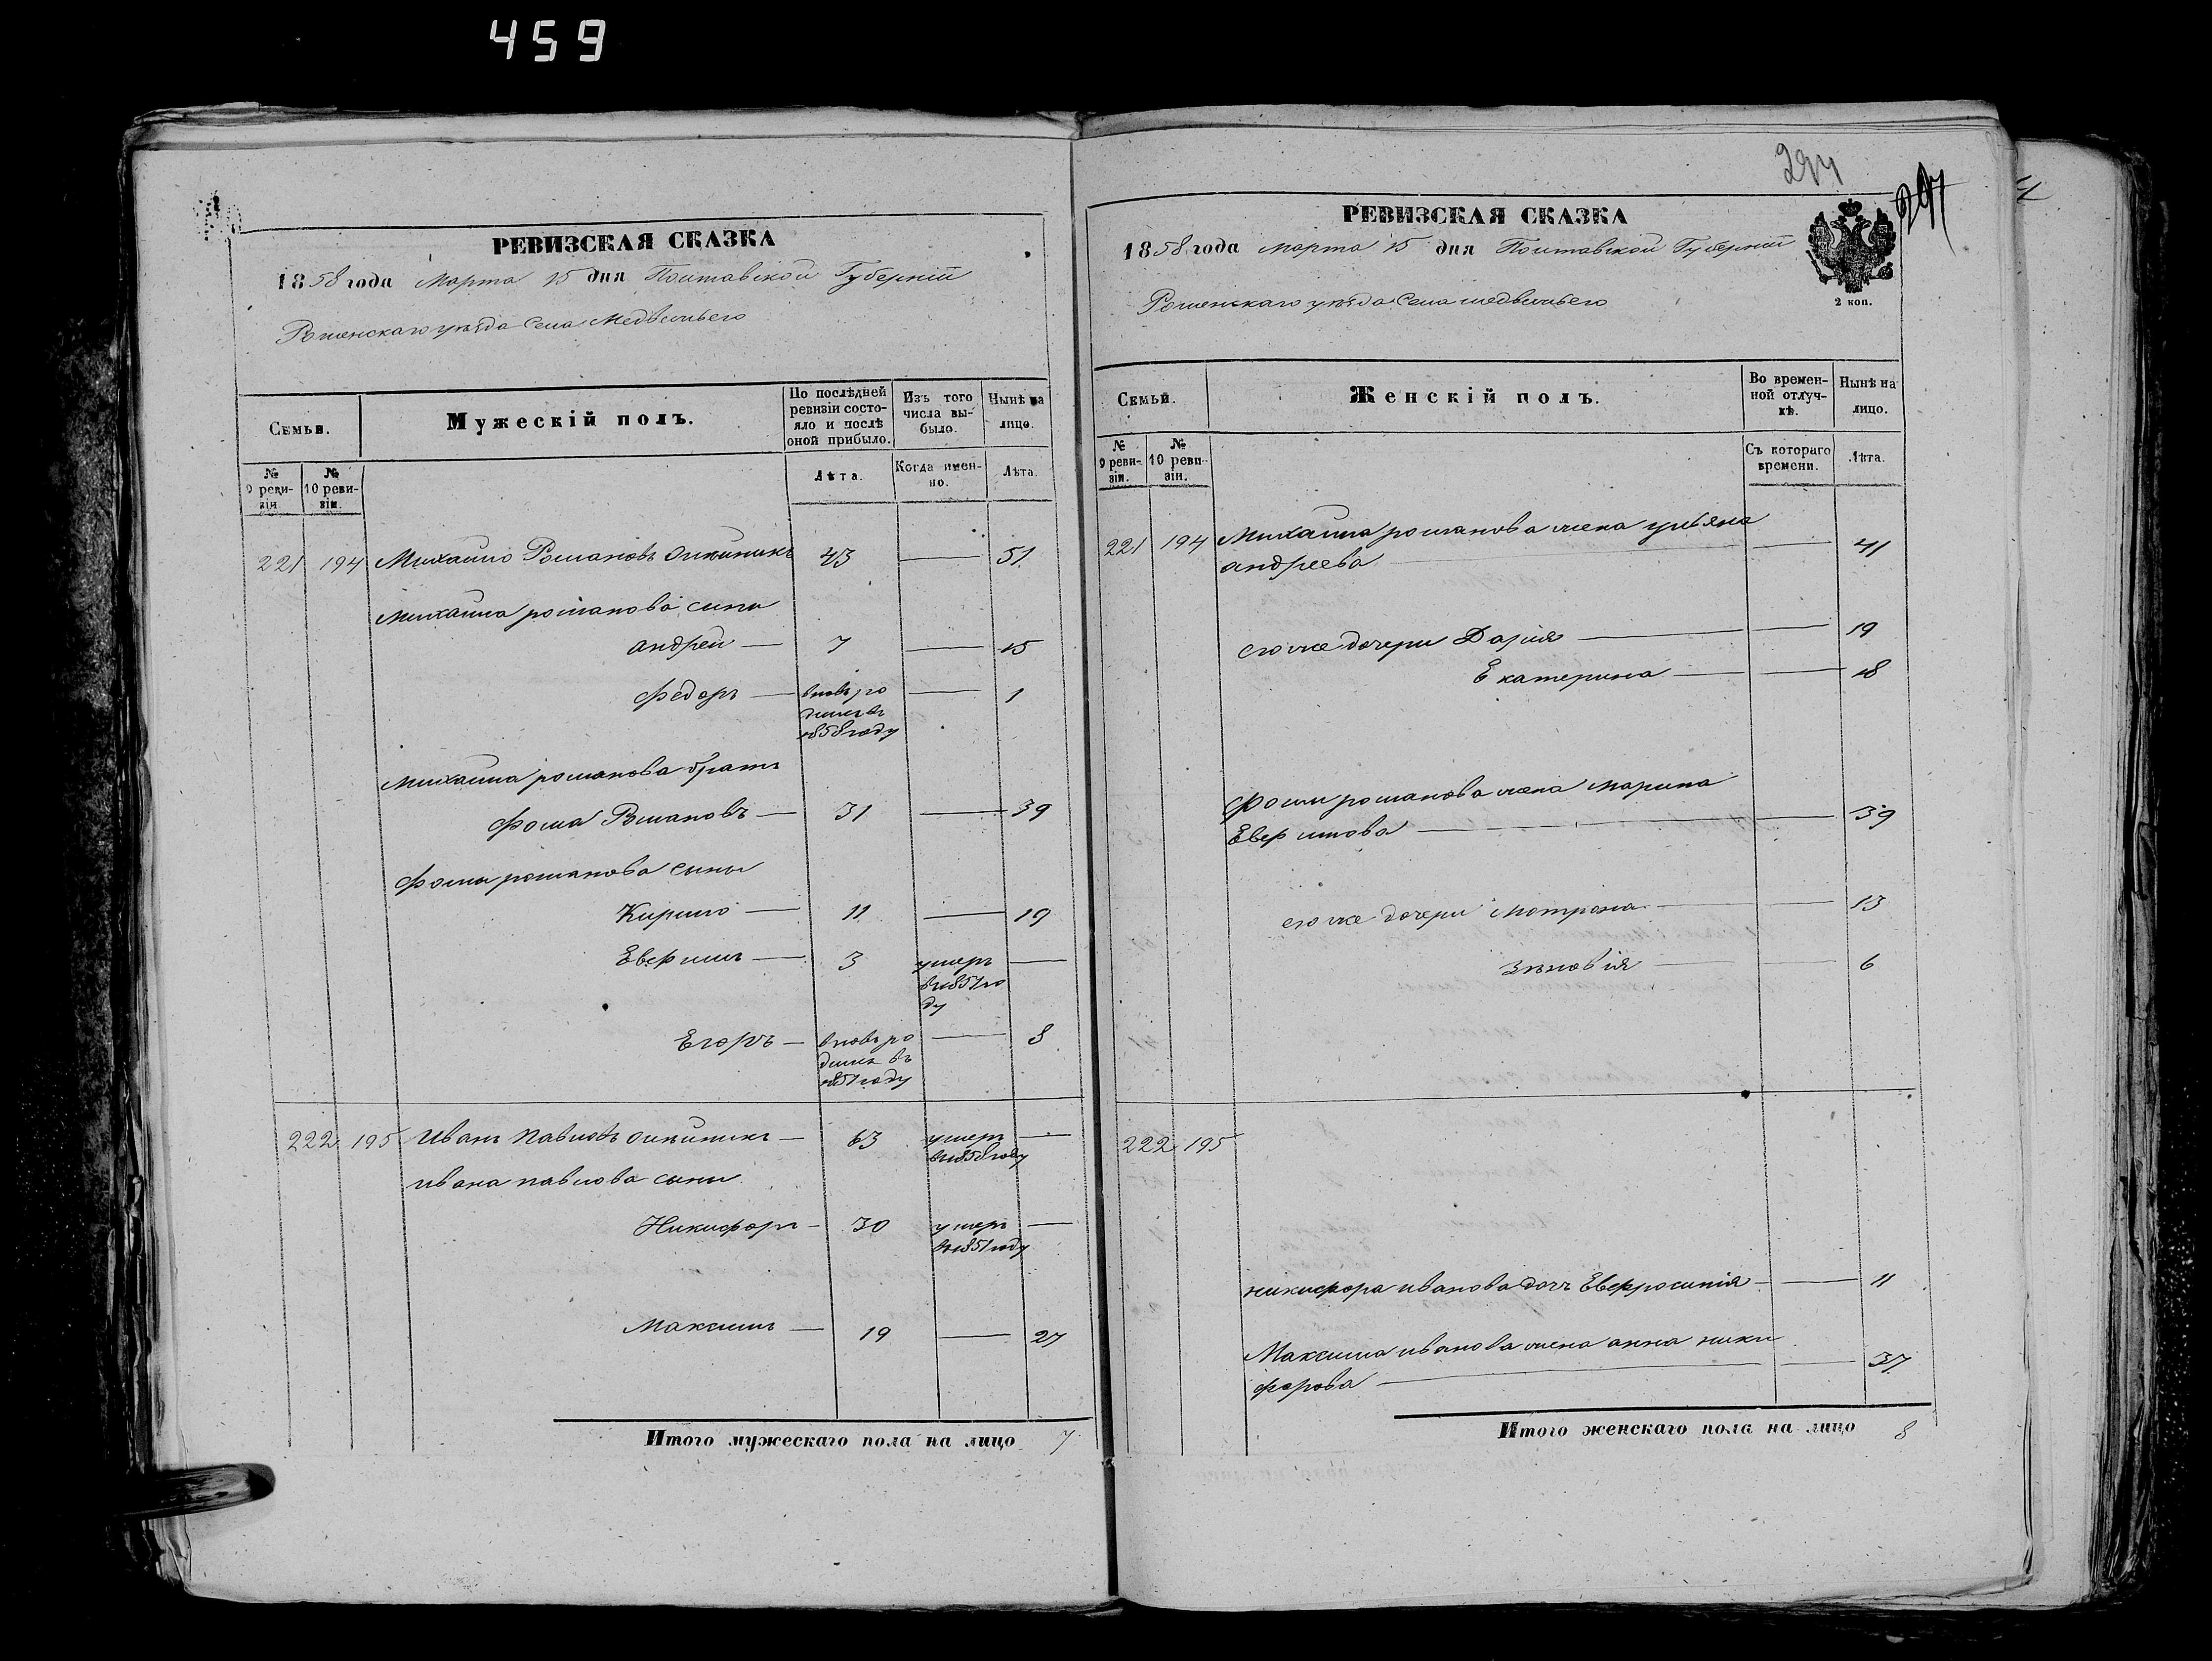 459
РЕВИЗСКАЯ СКАЗКА
1858 года Марта 15 дня Полтавской Губернiи
Роменскаго уѣзда Села Медвежьего
Семьи.
Мужескiй полъ.
По послѣдней ревизiи состояло и послѣ оной прибыло.
Изъ того числа выбыло.
Нынѣ на лицо.
№ 9 ревизiи
№ 10 ревизiи.
Лѣта.
Когда именно.
Лѣта.
221 194 Михайло Романовъ 43 — 51
Михайла романова сыны
андрей — 7 — 15
Федоръ — вновь ро — 1
дился въ
1858 году
Михайла романова братъ
Фома Романовъ — 31 — 39
Фомы романова сыны
Кирило — 11 — 19
Евфимъ — 3 умеръ —
въ 1851 го
ду
Егоръ — вновь ро — 8
дился въ
1851 году
222 195 Иванъ Павловъ — 63 умеръ —
въ 1858 году
ивана павлова сыны
Никифоръ — 30 умеръ —
въ 1851 году
Максимъ — 19 — 27
Итого мужескаго пола на лицо 7
294
РЕВИЗСКАЯ СКАЗКА
1858 года марта 15 дня Полтавской Губернiи
Роменскаго уѣзда Села медвежьего
2 коп.
Семьи.
Женскiй полъ.
Во временной отлучкѣ.
Нынѣ на лицо.
№ 9 ревизiи.
№ 10 ревизiи.
Съ котораго времени.
Лѣта.
221 194 Михайла романова жена ульяна
андреева — 41
его же дочери Дарiя — 19
Екатерина — 18
Фомы романова жена марина
Евфимова — 39
его же дочери Мотрона — 13
Зѣновiя — 6
222 195
никифора иванова дочь Евфросинiя — 11
Максима иванова жена анна ники
форова — 37
Итого женскаго пола на лицо 8